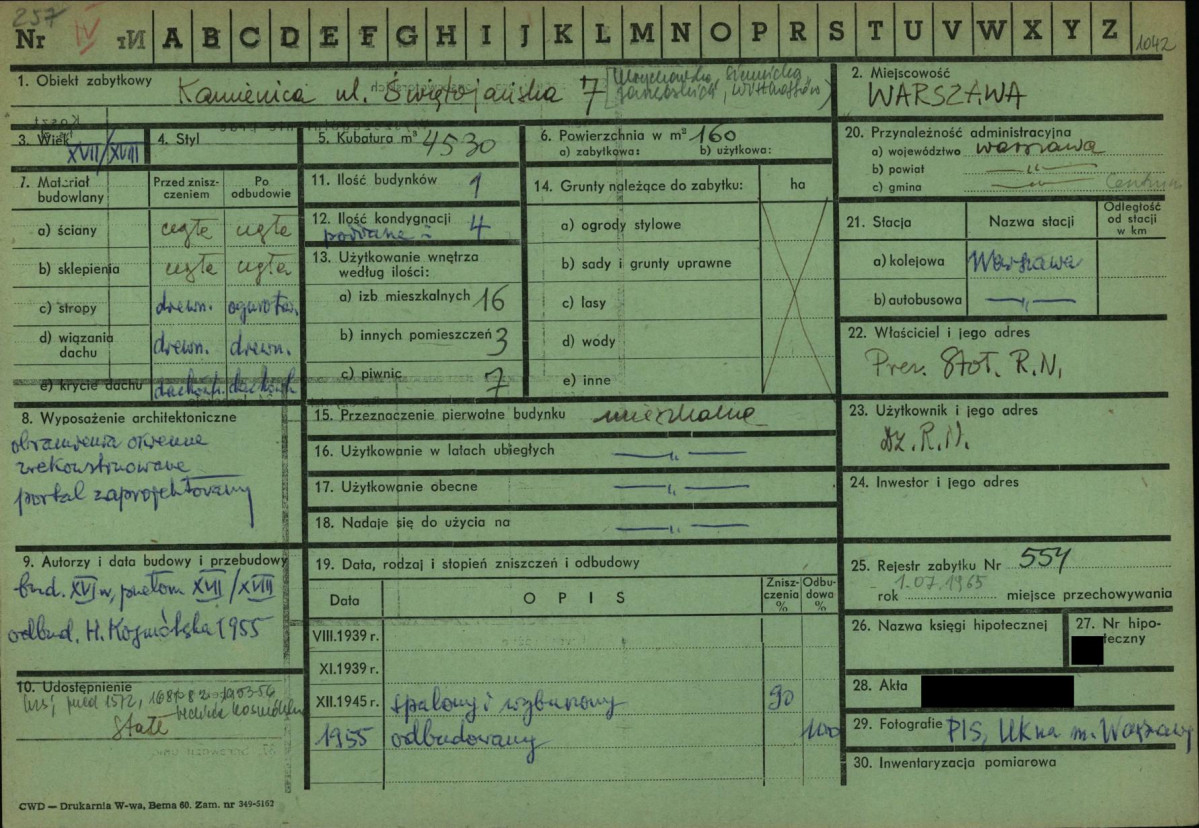 257
Nr IV A B C D E F G H I J K L M N O P R S T U V W X Y Z
1042
1. Obiekt zabytkowy Kamienica ul. Świętojańska 7
2. Miejscowość
WARSZAWA
3. Wiek XVII/XVIII
4. Styl
5. Kubatura m³ 4530
6. Powierzchnia w m² 160
a) zabytkowa: b) użytkowa:
20. Przynależność administracyjna
a) województwo warszawa
b) powiat —„—
c) gmina —„— Centrum
7. Materiał budowlany
Przed zniszczeniem
Po odbudowie
a) ściany cegła cegła
b) sklepienia cegła cegła
c) stropy drewn. ogniotrw.
d) wiązania dachu drewn. drewn.
e) krycie dachu dachówk. dachówk.
11. Ilość budynków 1
12. Ilość kondygnacji 4
13. Użytkowanie wnętrza
według ilości:
a) izb mieszkalnych 16
b) innych pomieszczeń 3
c) piwnic 7
14. Grunty należące do zabytku: ha
a) ogrody stylowe
b) sady i grunty uprawne
c) lasy
d) wody
e) inne
21. Stacja Nazwa stacji Odległość od stacji w km
a) kolejowa Warszawa
b) autobusowa —„—
22. Właściciel i jego adres
Prez. Stoł. R.N.
8. Wyposażenie architektoniczne
obramienia okienne
zrekonstruowane
portal zaprojektowany
15. Przeznaczenie pierwotne budynku mieszkalne
16. Użytkowanie w latach ubiegłych —„—
17. Użytkowanie obecne —„—
18. Nadaje się do użycia na —„—
23. Użytkownik i jego adres
Dz. R.N.
24. Inwestor i jego adres
9. Autorzy i data budowy i przebudowy
bud. XVI w, przełom XVII/XVIII
odbud. H. Kosmólska 1955
19. Data, rodzaj i stopień zniszczeń i odbudowy
Data OPIS Zniszczenia % Odbudowa %
VIII.1939 r.
XI.1939 r.
XII.1945 r. spalony i wyburzony 90
1955 odbudowany 100
25. Rejestr zabytku Nr 554
rok 1.07.1965 miejsce przechowywania
26. Nazwa księgi hipotecznej
27. Nr hipoteczny
28. Akta
29. Fotografie PIS, UKna m. Warszawy
30. Inwentaryzacja pomiarowa
10. Udostępnienie
przed 1572, 1953-56
Stałe
CWD — Drukarnia W-wa, Bema 60. Zam. nr 349-5162